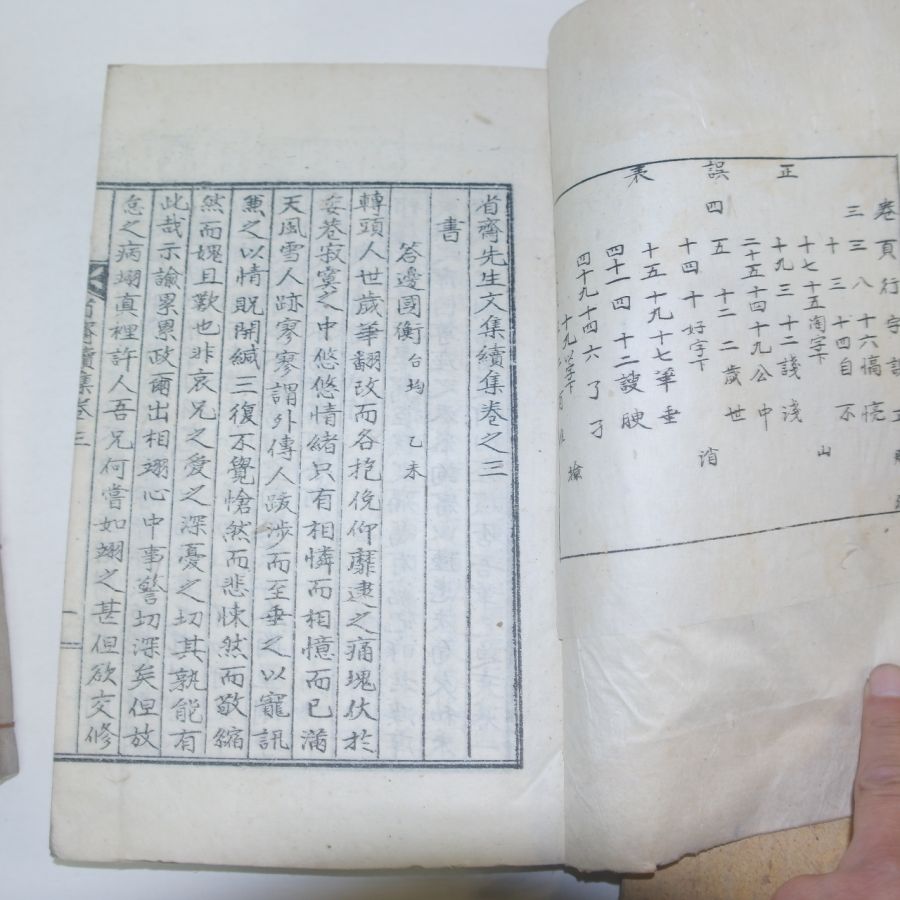 正誤表
卷頁行字誤正
三三八十六
十三十四自不
十七十五
十九三十二譏淺
二十五十四十九公中
四五十二二歲世
十四十好字下
十五十九十七葦垂
四十一四十二謏
四十九十四六了了
省齋先生文集續集卷之三
書
答邊國衡台均乙未
轉頭人世歲華翻改而各抱俛仰靡逮之痛塊伏於
妾巷寂寞之中悠悠情緒只有相憐而相憶而已滿
天風雪人跡寥寥謂外傳人跋涉而至垂之以寵訊
重之以情貺開緘三復不覺愴然而悲悚然而敬縮
然而媿且歎也非哀兄之愛之深憂之切其孰能有
此哉示諭累累政爾出相翊心中事警切深矣但放
怠之病翊眞裡許人吾兄何嘗如翊之甚但欲交修
省齋續集卷三
一